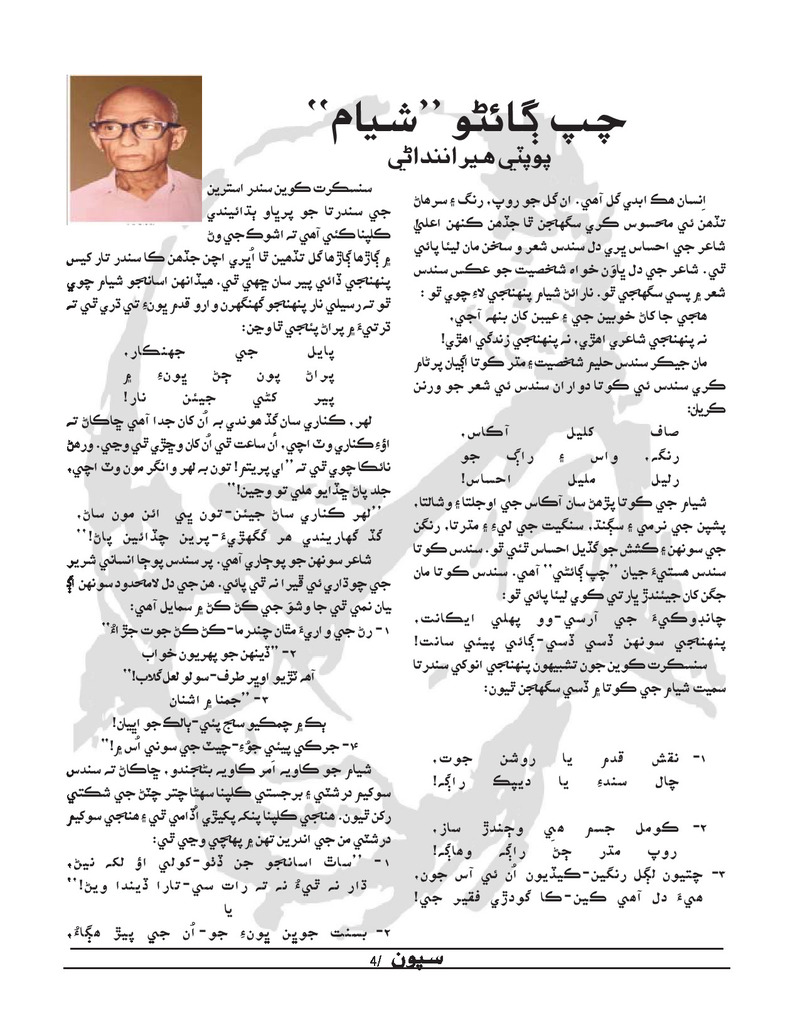 چپ ڳائڻو ”شيام“
پوپٽي هيراننداڻي
اِنسان هڪ ابدي گل آهي. ان گل جو روپ، رنگ ۽ سرهاڻ
تڏهن ئي محسوس ڪري سگهجن ٿا جڏهن ڪنهن اعليٰ
شاعر جي احساس ڀري دل سندس شعر و سخن مان ليئا پائي
ٿي. شاعر جي دل ڀاوَن خواه شخصيت جو عڪس سندس
شعر ۾ پسي سگهجي ٿو. نارائڻ شيام پنهنجي لاءِ چوي ٿو :
هجي جا کاڻ خوبين جي ۽ عيبن کان بنهه آجي،
نه پنهنجي شاعري اهڙي، نه پنهنجي زندگي اهڙي!
مان جيڪر سندس حليم شخصيت ۽ مٿر ڪوتا اڳيان پرڻام
ڪري سندس ئي ڪوتا دواران سندس ئي شعر جو ورنن
ڪريان:
صاف کليل آڪاس،
رنگه، واس ۽ راڳ جو
رليل مليل احساس!
شيام جي ڪوتا پڙهڻ سان آڪاس جي اوجلتا ۽ وشالتا،
پشپن جي نرمي ۽ سڳنڌ، سنگيت جي ليءِ ۽ مڌرتا، رنگن
جي سونهن ۽ ڪشش جو گڏيل احساس ٿئي ٿو. سندس ڪوتا
سندس هستيءَ جيان ”چپ ڳائڻي“ آهي. سندس ڪوتا مان
جڳن کان جيئندڙ ڀارتي ڪوي ليئا پائي ٿو:
چانڊوڪيءَ جي آرسي-وو پهلي ايڪانت،
پنهنجي سونهن ڏسي ڏسي-ڳائي پيئي سانت!
سنسڪرت ڪوين جون تشبيهون پنهنجي انوکي سندرتا
سميت شيام جي ڪوتا ۾ ڏسي سگهجن ٿيون:
۱- نقش قدم يا روشن جوت،
چال سندءِ يا ديپڪ راڳه!
۲- ڪومل جسم هي وڄندڙ ساز،
روپ مڌر ڄڻ راڳه وهاڳه!
۳- چتيون لڳل رنگين-ڪيڏيون اُن ئي آس جون،
هيءَ دل آهي ڪين-ڪا گودڙي فقير جي!
سنسڪرت ڪوين سندر استرين
جي سندرتا جو پرڀاو ٻڌائيندي
ڪلپنا ڪئي آهي ته اشوڪ جي وڻ
۾ ڳاڙها ڳاڙها گل تڏهين ٿا اُڀري اچن جڏهن ڪا سندر نار کيس
پنهنجي ڏائي پير سان ڇهي ٿي. هيڏانهن اسانجو شيام چوي
ٿو ته رسيلي نار پنهنجو گهنگهرن وارو قدم ڀونءِ تي ڌري ٿي ته
ڌرتيءَ ۾ پراڻ پئجي ٿا وڃن:
پايل جي جهنڪار،
پراڻ پون ڄڻ ڀونءِ ۾
پير کڻي جيئن نار!
لهر، ڪناري سان گڏ هوندي به اُن کان جدا آهي ڇاڪاڻ ته
اوءِ ڪناري وٽ اچي، اُن ساعت ٿي اُن کان وڇڙي ٿي وڃي. ورهڻ
نائڪا چوي ٿي ته ”اي پريتم! تون به لهر وانگر مون وٽ اچي،
جلد پاڻ ڇڏايو هلي ٿو وڃين!“
”لهر ڪناري ساڻ جيئن-تون پي ائن مون ساڻ،
گڏ گهاريندي هر گگهڙيءَ-پرين ڇڏائين پاڻ!“
شاعر سونهن جو پوڄاري آهي. پر سندس پوڄا انساني شرير
جي چوڌاري ئي ڦيرا نه ٿي پائي. هن جي دل لامحدود سونهن اڳ
بيان نمي ٿي جا وشو جي ڪڻ ڪڻ ۾ سمايل آهي:
۱- رڻ جي واريءَ مٿان چندرما-ڪڻ ڪڻ جوت جڙاءُ“
۲- ”ڏينهن جو پهريون خواب
آهه ٽڙيو اوڀر طرف-سولو لعل گلاب!“
۳- ”جمنا ۾ اشنان
ٻڪ ۾ چمڪيو سج پئي-ٻالڪ جو اڀيان!
۴- جرڪي پيئي جوءِ-چيٽ جي سوني اُس ۾!“
شيام جو ڪاويه اَمر ڪاويه بڻجندو، ڇاڪاڻ ته سندس
سوکيم درشٽي ۽ برجستي ڪلپنا سهڻا چتر چٽڻ جي شڪتي
رکن ٿيون. هنجي ڪلپنا پنکه پکيڙي اُڏامي ٿي ۽ هنجي سوکيم
درشٽي من جي اندرين تهن ۾ پهچي وڃي ٿي:
۱- ”ساٿ اسانجو جن ڏٺو-کولي اؤ لکه نيڻ،
ڌار نه ٿيءُ نه ته رات سي-تارا ڏيندا ويڻ!“
يا
۲- بسنت جوڀن ڀونءِ جو-اُن جي پيڙ هڳاءُ،
4/ سپون